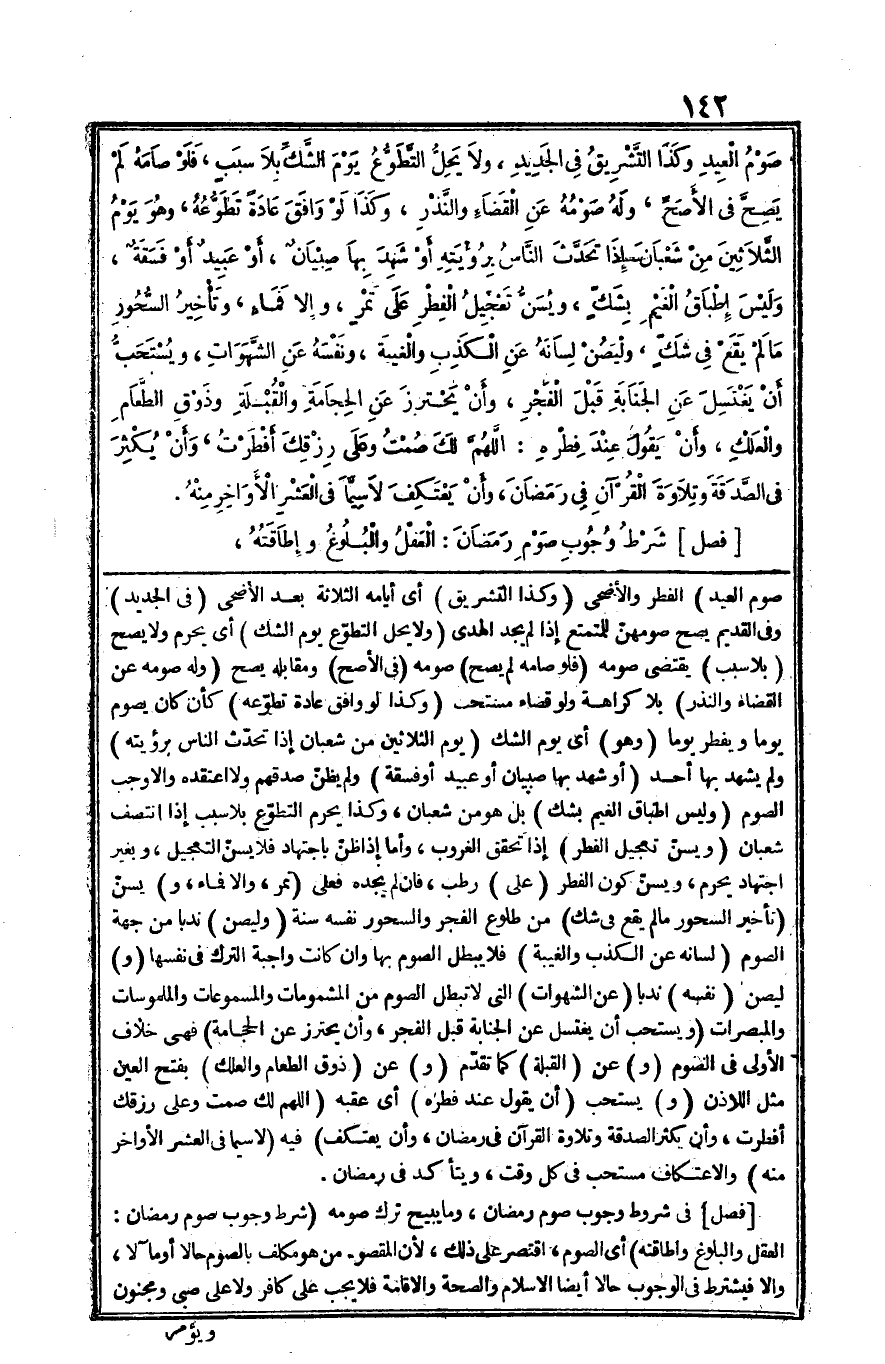 ١٤٢
صَوْمُ الْعِيدِ وكَذَا التَّشْرِيقُ فِى الْجَدِيدِ ، ولاَ يَحِلُّ التَّطَوُّعُ يَوْمَ الشَّكِّ بِلاَ سَبَبٍ ، فَلَوْ صامَهُ لَمْ
يَصِحَّ فى الأَصَحِّ ، ولَهُ صَوْمُهُ عَنِ الْقَضَاءِ والنَّذْرِ ، وكَذَا لَوْ وَافَقَ عَادَةَ تَطَوُّعِهُ ، وهُوَ يَوْمُ
الثَّلاَثِينَ مِنْ شَعْبَانَ إِذَا تَحَدَّثَ النَّاسُ بِرُؤْيَتِهِ أَوْ شَهِدَ بِهَا صِبْيَانٌ ، أَوْ عَبِيدٌ أَوْ فَسَقَةٌ ،
وَلَيْسَ إِطْبَاقُ الْغَيْمِ بِشَكٍّ ، ويُسَنُّ تَعْجِيلُ الْفِطْرِ عَلَى تَمْرٍ ، وإلا فَمَاءٍ ، وتَأْخِيرُ السُّحُورِ
مَالَمْ يَقَعْ فِي شَكٍّ ، ولْيَصُنْ لِسَانَهُ عَنِ الْكَذِبِ والْغِيبَةِ ، ونَفْسَهُ عَنِ الشَّهَوَاتِ ، ويُسْتَحَبُّ
أَنْ يَغْتَسِلَ عَنِ الْجَنَابَةِ قَبْلَ الْفَجْرِ ، وأَنْ يَحْتَرِزَ عَنِ الحِجَامَةِ والْقُبْلَةِ وذَوْقِ الطَّعَامِ
والْعَلْكِ ، وأَنْ يَقُولَ عِنْدَ فِطْرِهِ : اللَّهُمَّ لَكَ صُمْتُ وعَلَى رِزْقِكَ أَفْطَرْتُ ، وَأَنْ يُكْثِرَ
فِى الصَّدَقَةَ وتِلاَوَةَ الْقُرْآنِ فِي رَمَضَانَ ، وأَنْ يَعْتَكِفَ لاَسِيَّمَا فِى الْعَشْرِ الْأَوَاخِرِ مِنْهُ .
[ فصل ] شَرْطُ وُجُوبِ صَوْمِ رَمَضَانَ : الْعَقْلُ والْبُلُوغُ و إِطَاقَتُهُ ،
صوم العيد ) الفطر والأضحى ( وكذا التشريق ) أى أيامه الثلاثة بعد الأضحى ( فى الجديد )
وفى القديم يصح صومهنّ للمتمتع إذا لم يجد الهدى ( ولايحل التطوّع يوم الشك ) أى يحرم ولايصح
( بلاسبب ) يقتضى صومه ( فلو صامه لم يصح ) صومه ( فى الأصح ) ومقابله يصح ( وله صومه عن
القضاء والنذر ) بلا كراهة ولو قضاء مستحب ( وكذا لو وافق عادة تطوّعه ) كأن كان يصوم
يوما ويفطر يوما ( وهو ) أى يوم الشك ( يوم الثلاثين من شعبان إذا تحدّث الناس برؤيته )
ولم يشهد بها أحد ( أوشهد بها صبيان أو عبيد أوفسقة ) ولم يظنّ صدقهم ولا اعتقده والا وجب
الصوم ( وليس اطباق الغيم بشك ) بل هومن شعبان ، وكذا يحرم التطوّع بلاسبب إذا انتصف
شعبان ( ويسنّ تعجيل الفطر ) إذا تحقق الغروب ، وأما إذاظنّ باجتهاد فلايسنّ التعجيل ، وبغير
اجتهاد يحرم ، ويسنّ كون الفطر ( على ) رطب ، فان لم يجده فعلى ( تمر ، والا فماء ، و ) يسنّ
( تأخير السحور مالم يقع فى شك ) من طلوع الفجر والسحور نفسه سنة ( وليصن ) ندبا من جهة
الصوم ( لسانه عن الكذب والغيبة ) فلايبطل الصوم بها وان كانت واجبة الترك فى نفسها ( و )
ليصن ( نفسه ) ندبا ( عن الشهوات ) التى لاتبطل الصوم من المشمومات والمسموعات والملموسات
والمبصرات ( ويستحب أن يغتسل عن الجنابة قبل الفجر ، وأن يحترز عن الحجامة ) فهى خلاف
الأولى فى الصوم ( و ) عن ( القبلة ) كما تقدّم ( و ) عن ( ذوق الطعام والعلك ) بفتح العين
مثل اللاذن ( و ) يستحب ( أن يقول عند فطره ) أى عقبه ( اللهم لك صمت وعلى رزقك
أفطرت ، وأن يكثر الصدقة وتلاوة القرآن فى رمضان ، وأن يعتكف ) فيه ( لاسيما فى العشر الأواخر
منه ) والاعتكاف مستحب فى كل وقت ، ويتأكد فى رمضان .
[ فصل ] فى شروط وجوب صوم رمضان ، ومايبيح ترك صومه ( شرط وجوب صوم رمضان :
العقل والبلوغ واطاقته ) أى الصوم ، اقتصر على ذلك ، لأن المقصود من هو مكلف بالصوم حالا أومآلا ،
والا فيشترط فى الوجوب حالا أيضا الاسلام والصحة والاقامة فلايجب على كافر ولاعلى صبى ومجنون
ويؤمر